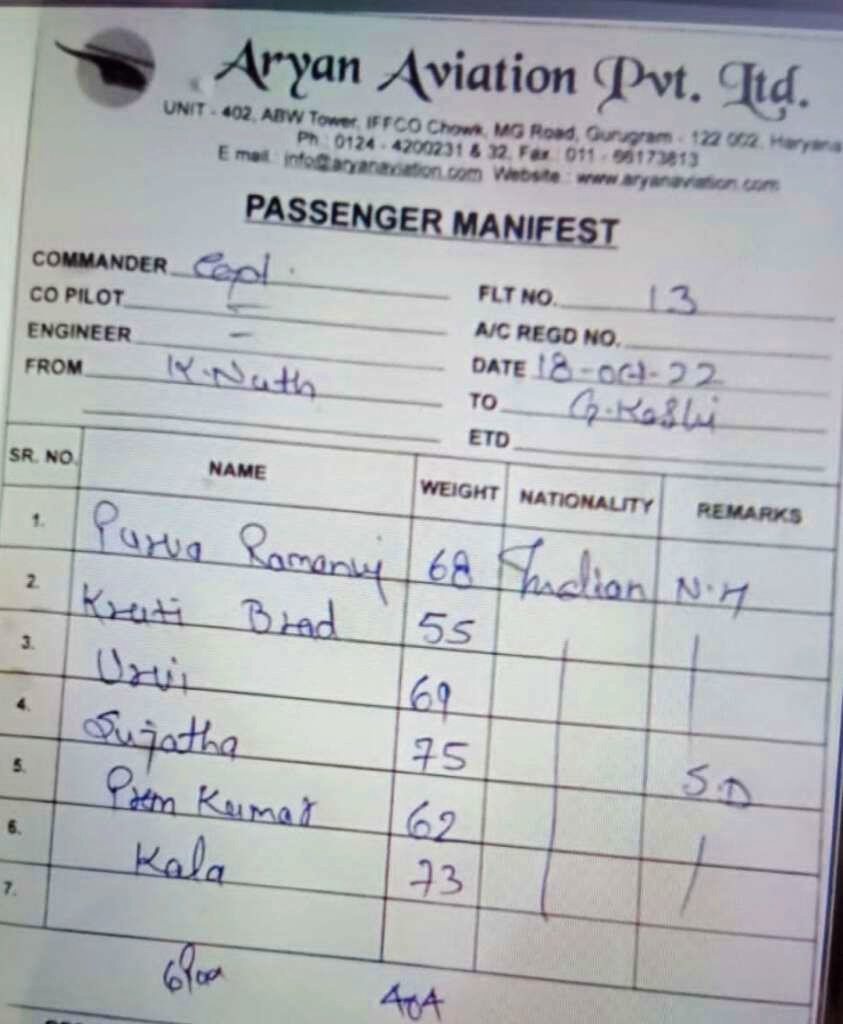 Aryan Aviation Pvt. Ltd.
UNIT - 402, ABW Tower, IFFCO Chowk, MG Road, Gurugram - 122 002, Haryana
Ph : 0124 - 4200231 & 32, Fax : 011 - 66173813
E mail : info@aryanaviation.com Website : www.aryanaviation.com
PASSENGER MANIFEST
COMMANDER Capt.
FLT NO. 13
CO PILOT -
A/C REGD NO.
ENGINEER -
DATE 18-oct-22
FROM K.Nath
TO G.Kashi
ETD
SR. NO. NAME WEIGHT NATIONALITY REMARKS
1. Purva Ramanuj 68 Indian N.H
2. Kruti Brad 55
3. Urvi 69
4. Sujatha 75 S.D
5. Prem Kumar 62
6. Kala 73
7.